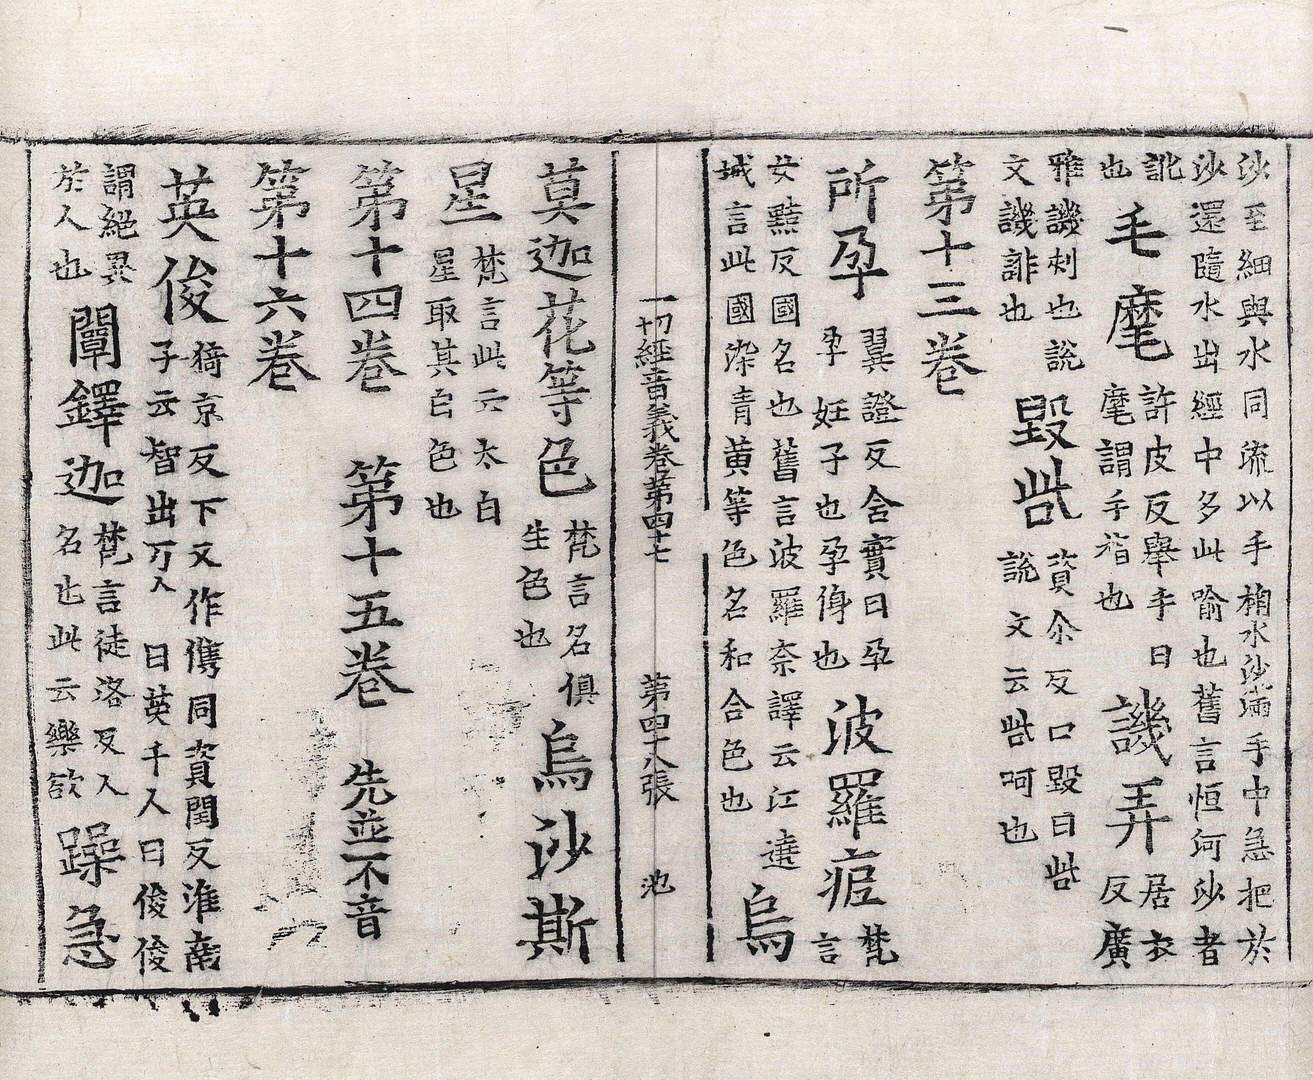 沙至細與水同流以手掬水沙滿手中急把於
沙還隨水出經中多此喻也舊言恒河沙者
訛
也
毛麾
許皮反舉手曰
麾謂手指也
譏弄
居衣
反廣
雅譏刺也說
文譏誹也
毀呰
資尒反口毀曰呰
說文云呰呵也
第十三卷
所孕
翼證反含實曰孕
孕妊子也孕傳也
波羅痆
梵
言
女黠反國名也舊言波羅奈譯云江遶
城言此國染青黄等色名和合色也
烏
一切經音義卷第四十七
第四十八張
池
莫迦花等色
梵言名俱
生色也
烏沙斯
星
梵言此云太白
星取其白色也
第十四卷
第十五卷
先並不音
第十六卷
英俊
猗京反下又作儁同資閏反淮南
子云智出万人曰英千人曰俊俊
謂絕異
於人也
闡鐸迦
梵言徒洛反人
名也此云樂欲
躁急